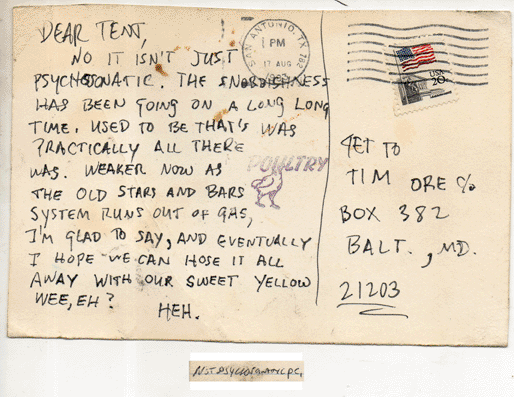 DEAR TENT,
NO IT ISN'T JUST
PSYCHOSONATIC. THE SNOBBISHNESS
HAS BEEN GOING ON A LONG LONG
TIME. USED TO BE THAT'S WAS
PRACTICALLY ALL THERE
WAS. WEAKER NOW AS
THE OLD STARS AND BARS
SYSTEM RUNS OUT OF GAS,
I'M GLAD TO SAY, AND EVENTUALLY
I HOPE WE CAN HOSE IT ALL
AWAY WITH OUR SWEET YELLOW
WEE, EH?
HEH.
POULTRY
SAN ANTONIO, TX 782
PM
17 AUG
USA
20c
TO
TIM ORE %
BOX 382
BALT., MD.
21203